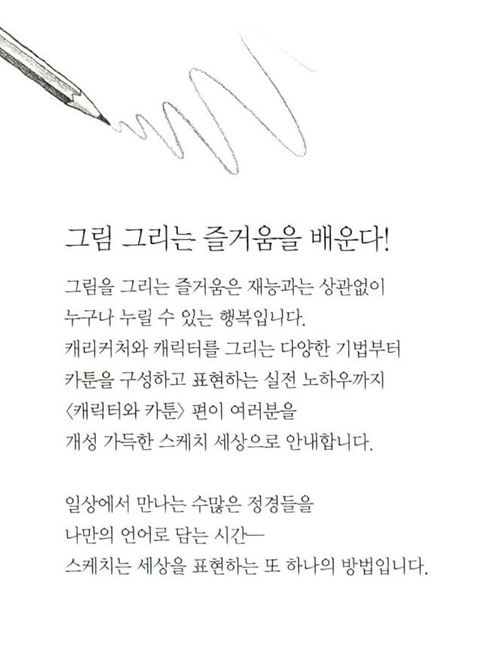 그림 그리는 즐거움을 배운다!
그림을 그리는 즐거움은 재능과는 상관없이
누구나 누릴 수 있는 행복입니다.
캐리커처와 캐릭터를 그리는 다양한 기법부터
카툰을 구성하고 표현하는 실전 노하우까지
〈캐릭터와 카툰〉 편이 여러분을
개성 가득한 스케치 세상으로 안내합니다.
일상에서 만나는 수많은 정경들을
나만의 언어로 담는 시간—
스케치는 세상을 표현하는 또 하나의 방법입니다.